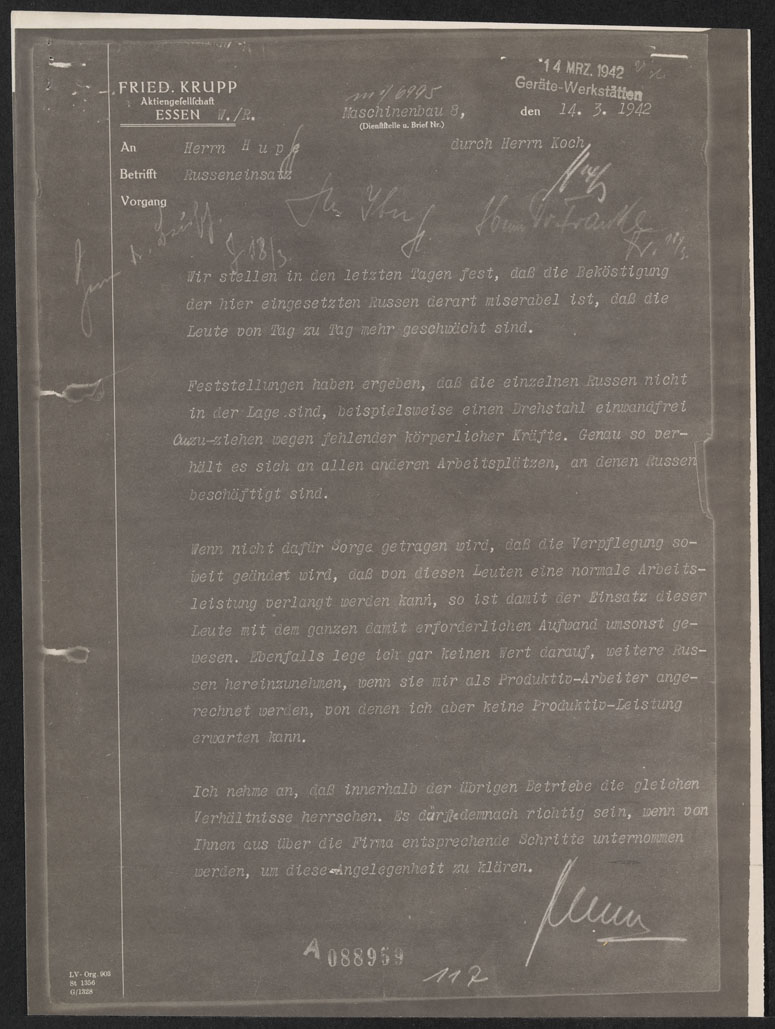 14 MRZ. 1942
Geräte-Werkstätten
FRIED. KRUPP
Aktiengesellschaft
ESSEN W./R.
Maschinenbau 8,
(Dienststelle u. Brief Nr.)
den 14. 3. 1942
An Herrn Hupe durch Herrn Koch
Betrifft Russeneinsatz
Vorgang
18/3.
Wir stellen in den letzten Tagen fest, daß die Beköstigung
der hier eingesetzten Russen derart miserabel ist, daß die
Leute von Tag zu Tag mehr geschwächt sind.
Feststellungen haben ergeben, daß die einzelnen Russen nicht
in der Lage sind, beispielsweise einen Drehstahl einwandfrei
anzu-ziehen wegen fehlender körperlicher Kräfte. Genau so ver-
hält es sich an allen anderen Arbeitsplätzen, an denen Russen
beschäftigt sind.
Wenn nicht dafür Sorge getragen wird, daß die Verpflegung so-
weit geändet wird, daß von diesen Leuten eine normale Arbeits-
leistung verlangt werden kann, so ist damit der Einsatz dieser
Leute mit dem ganzen damit erforderlichen Aufwand umsonst ge-
wesen. Ebenfalls lege ich gar keinen Wert darauf, weitere Rus-
sen hereinzunehmen, wenn sie mir als Produktiv-Arbeiter ange-
rechnet werden, von denen ich aber keine Produktiv-Leistung
erwarten kann.
Ich nehme an, daß innerhalb der übrigen Betriebe die gleichen
Verhältnisse herrschen. Es dürfte demnach richtig sein, wenn von
Ihnen aus über die Firma entsprechende Schritte unternommen
werden, um diese Angelegenheit zu klären.
A 088959
117
LV- Org. 903
St 1356
G/1328